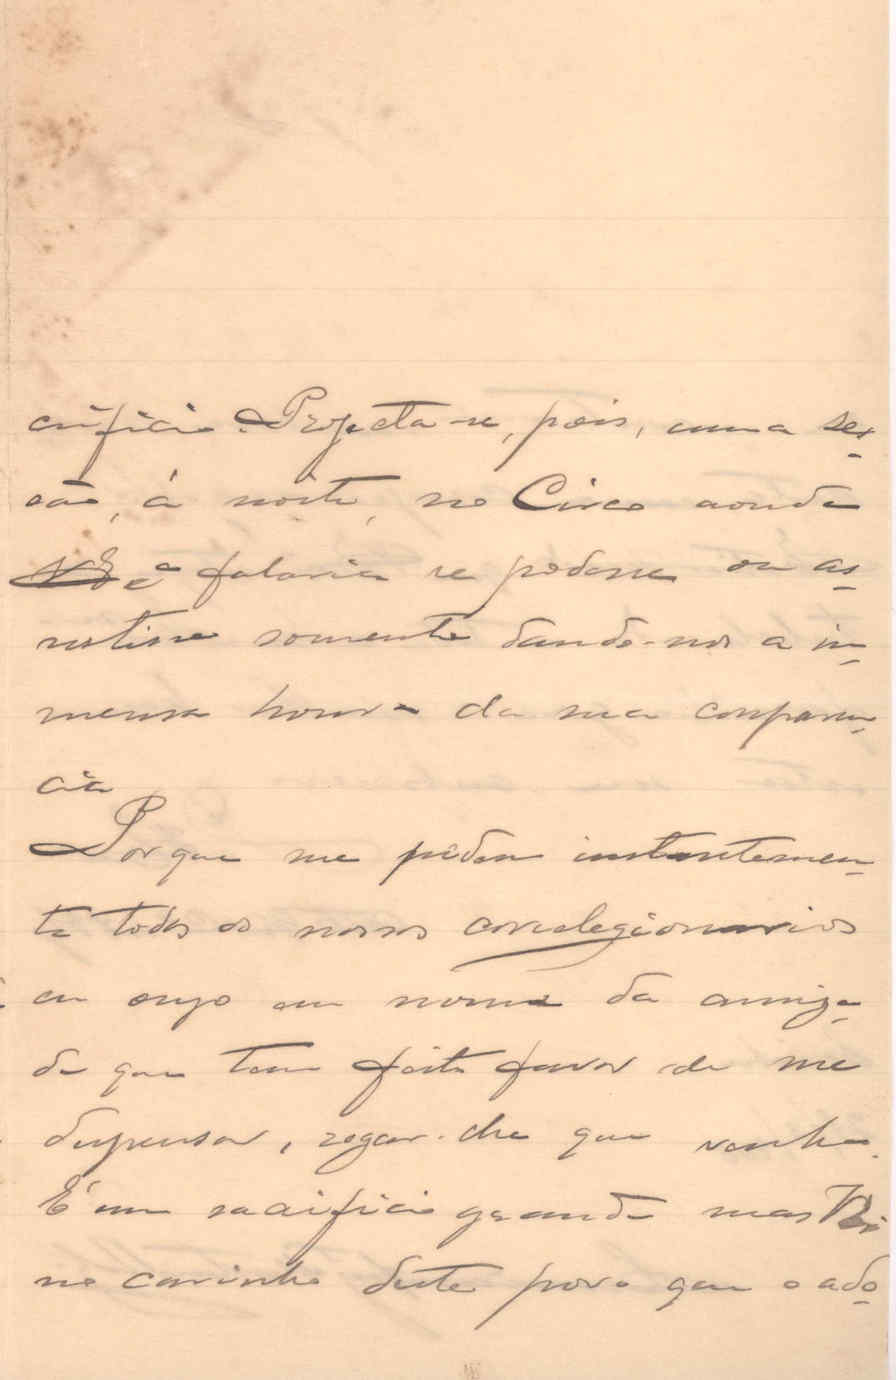 crificio. Projecta-se, pois, uma ses-
são, á noite, no Circo aonde
V Eª falaria se podesse ou as-
sistisse somente dando-nos a im-
mensa honra da sua comparen-
cia
Porque me pedem instantemen-
te todos os nossos correlegionarios
eu ouso em nome da amiza-
de que tem feito favor de me
dispensar, rogar-lhe que venha.
É um sacrificio grande mas
no carinho deste povo que o ado-